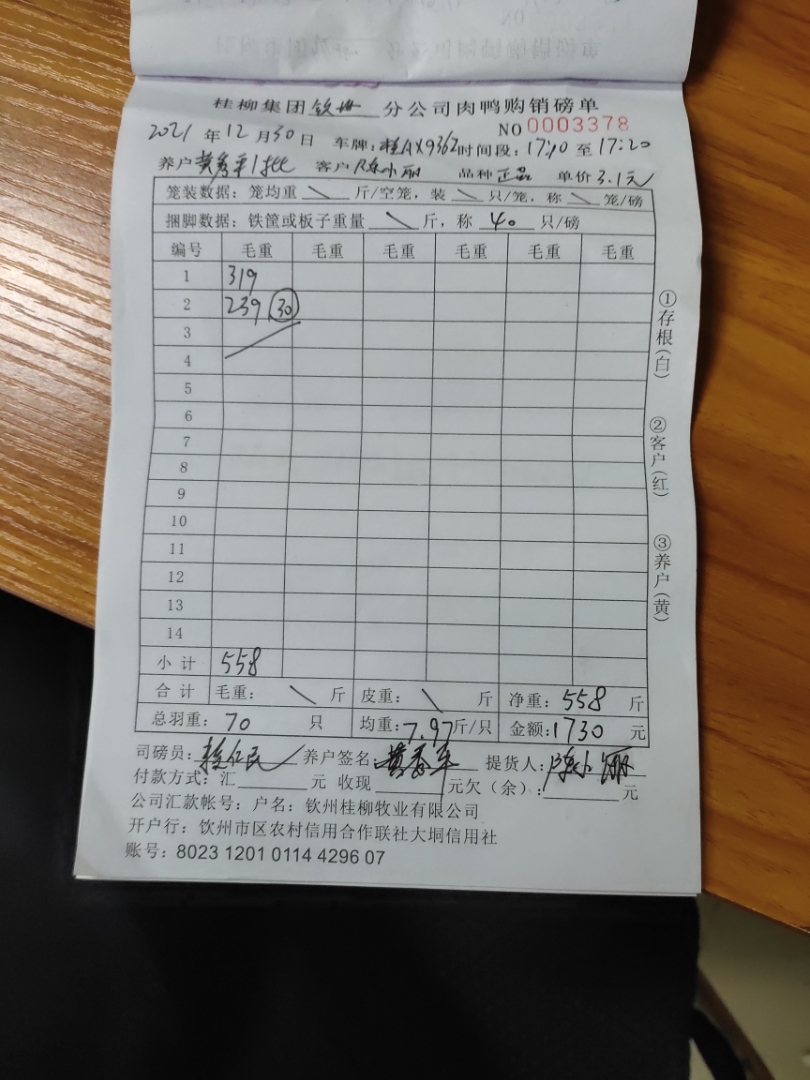 桂柳集团钦州分公司肉鸭购销磅单
NO 0003378
2021年12月30日 车牌:桂AX9362时间段:17:10至17:20
养户 黄秀平 客户 陈小丽 品种 正品 单价 3.1元
笼装数据:笼均重 \ 斤/空笼,装 \ 只/笼,称 \ 笼/磅
捆脚数据:铁筐或板子重量 \ 斤,称 40 只/磅
编号 毛重 毛重 毛重 毛重 毛重 毛重
1 319
2 239 30
3
4
5
6
7
8
9
10
11
12
13
14
小计 558
合计 毛重: \ 斤 皮重: \ 斤 净重: 558 斤
总羽重: 70 只 均重: 7.97斤/只 金额:1730 元
司磅员: 养户签名: 黄秀平 提货人: 陈小丽
付款方式:汇 元 收现 元欠(余): 元
公司汇款帐号:户名:钦州桂柳牧业有限公司
开户行:钦州市区农村信用合作联社大垌信用社
账号:8023 1201 0114 4296 07
①存根(白)
②客户(红)
③养户(黄)